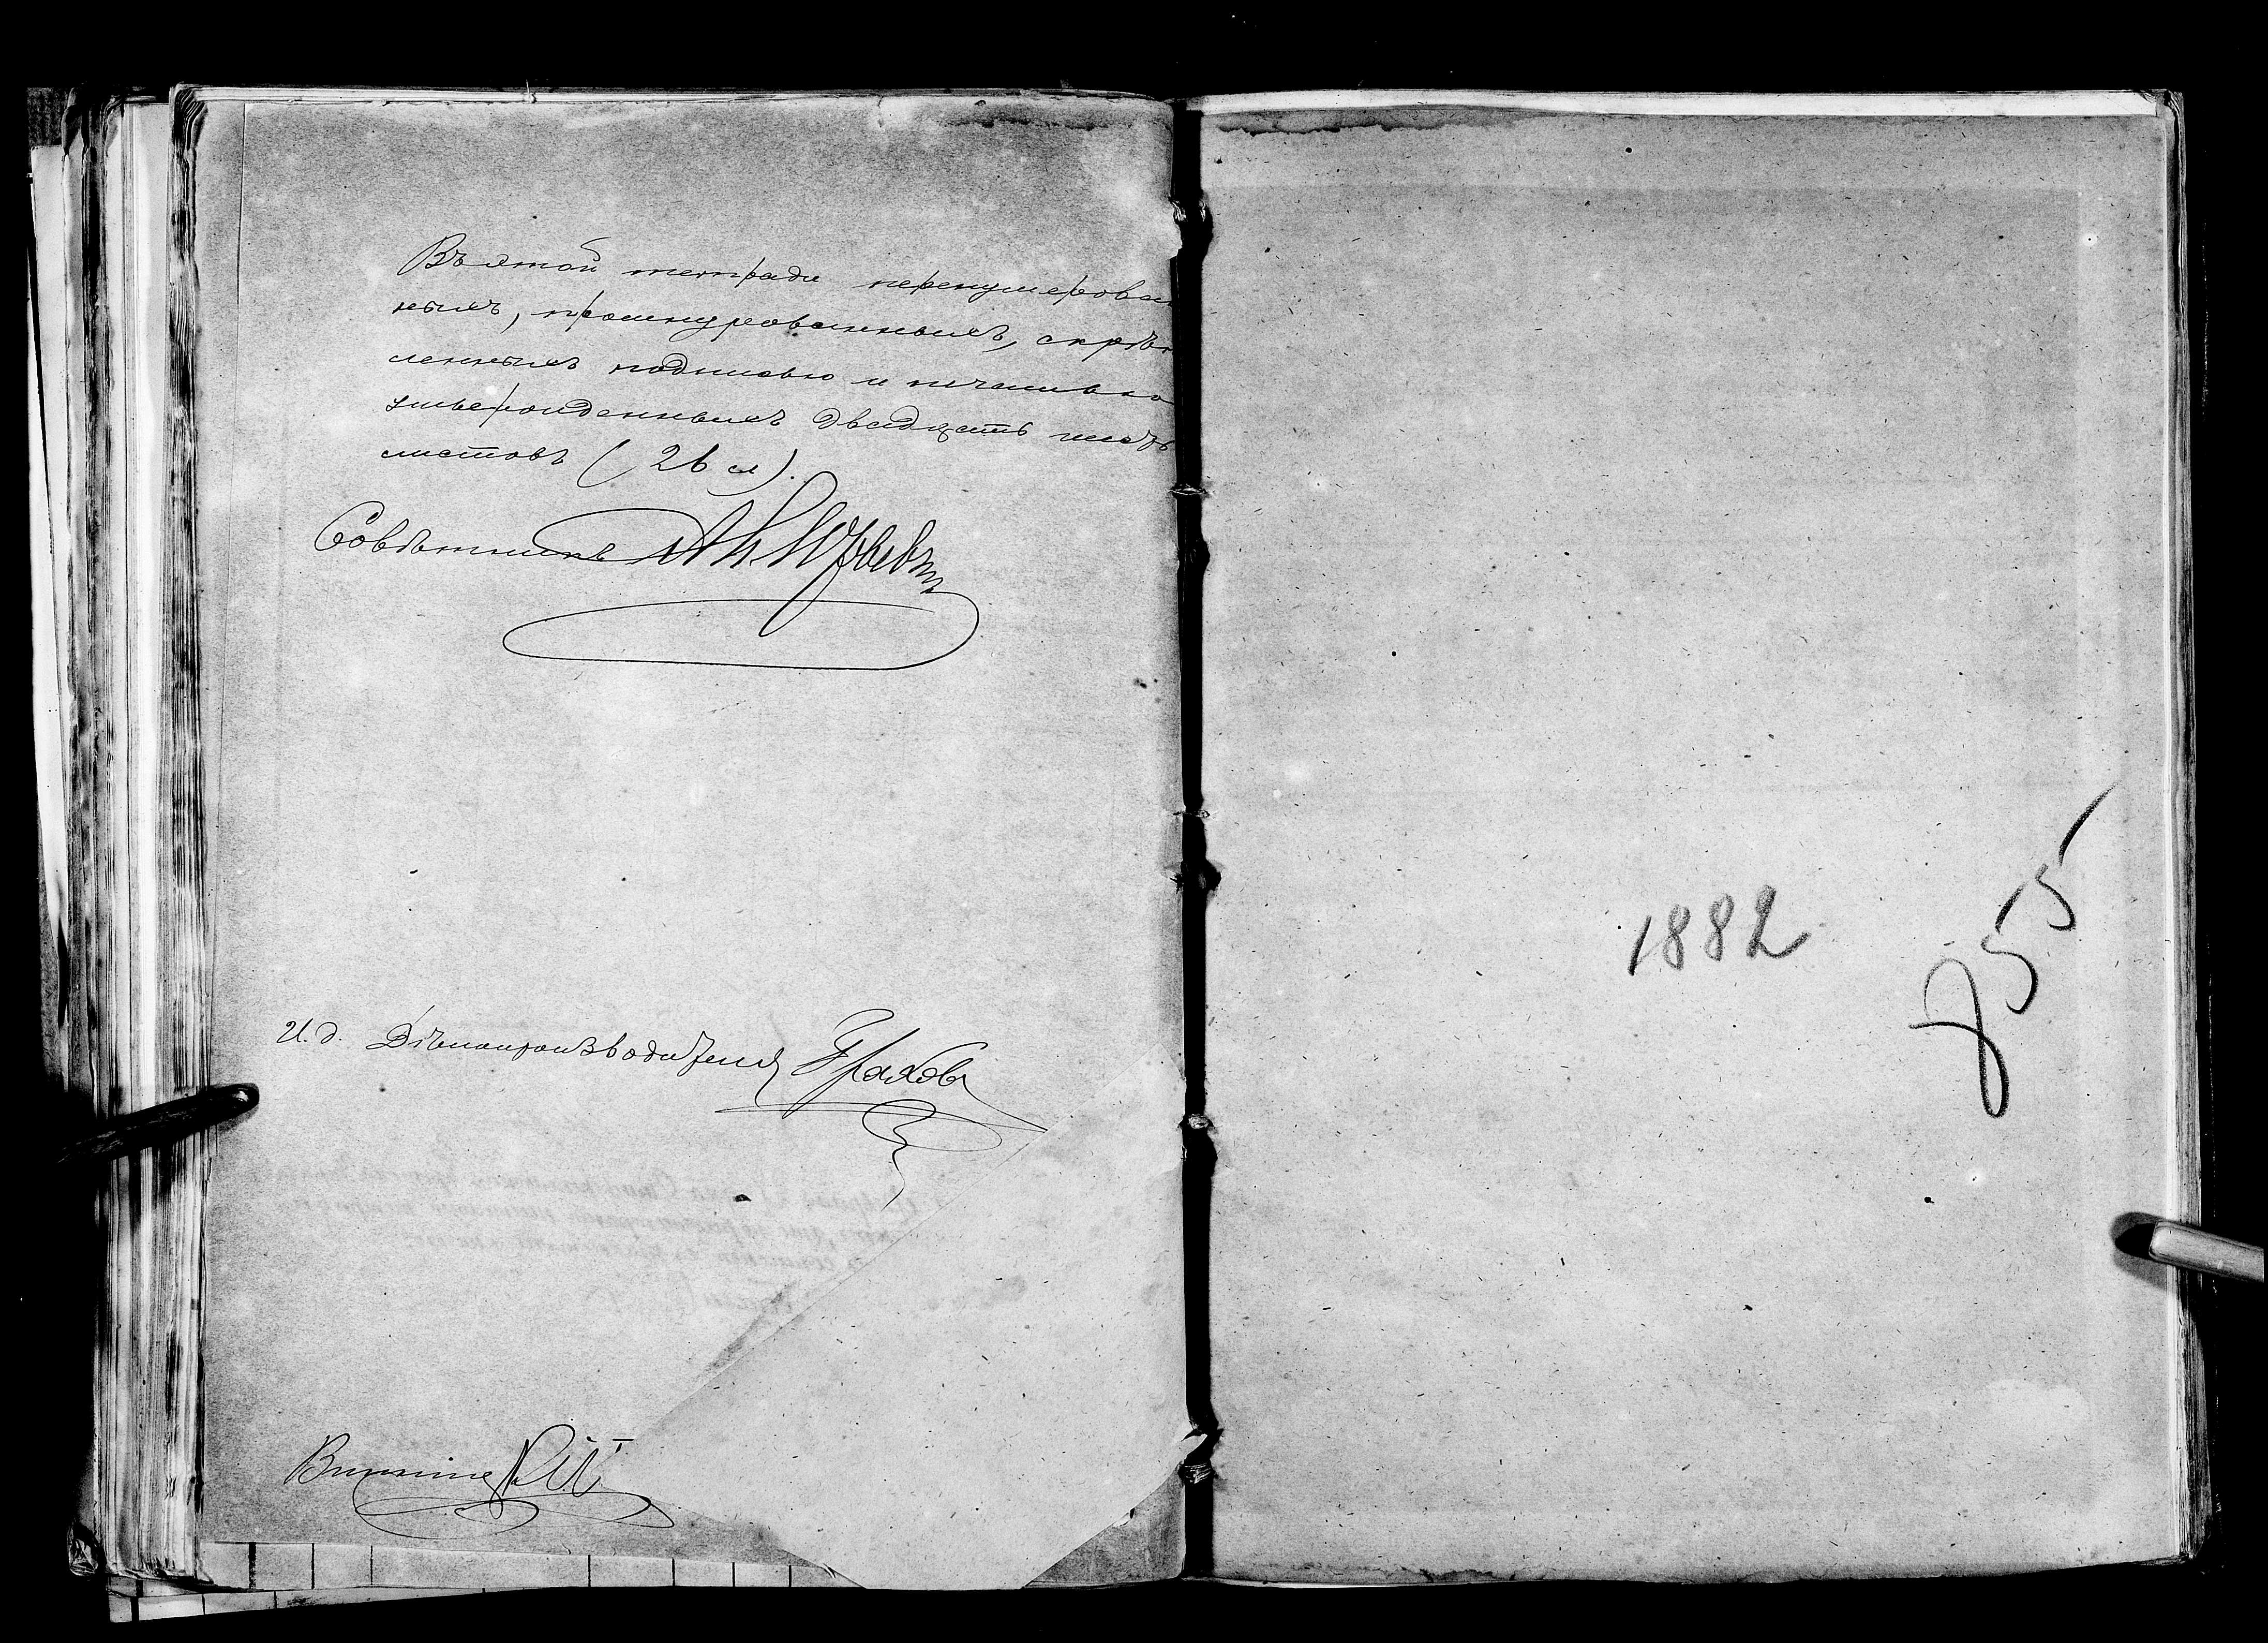 Въ этой тетради перенумерован
ныхъ, прошнурованныхъ, скрѣп
ленныхъ подписью и печатью
утвержденныхъ двадцать шесть
листовъ (26 л).
Совѣтникъ
И. д. Дѣлопроизводителя Граховъ
1882
855